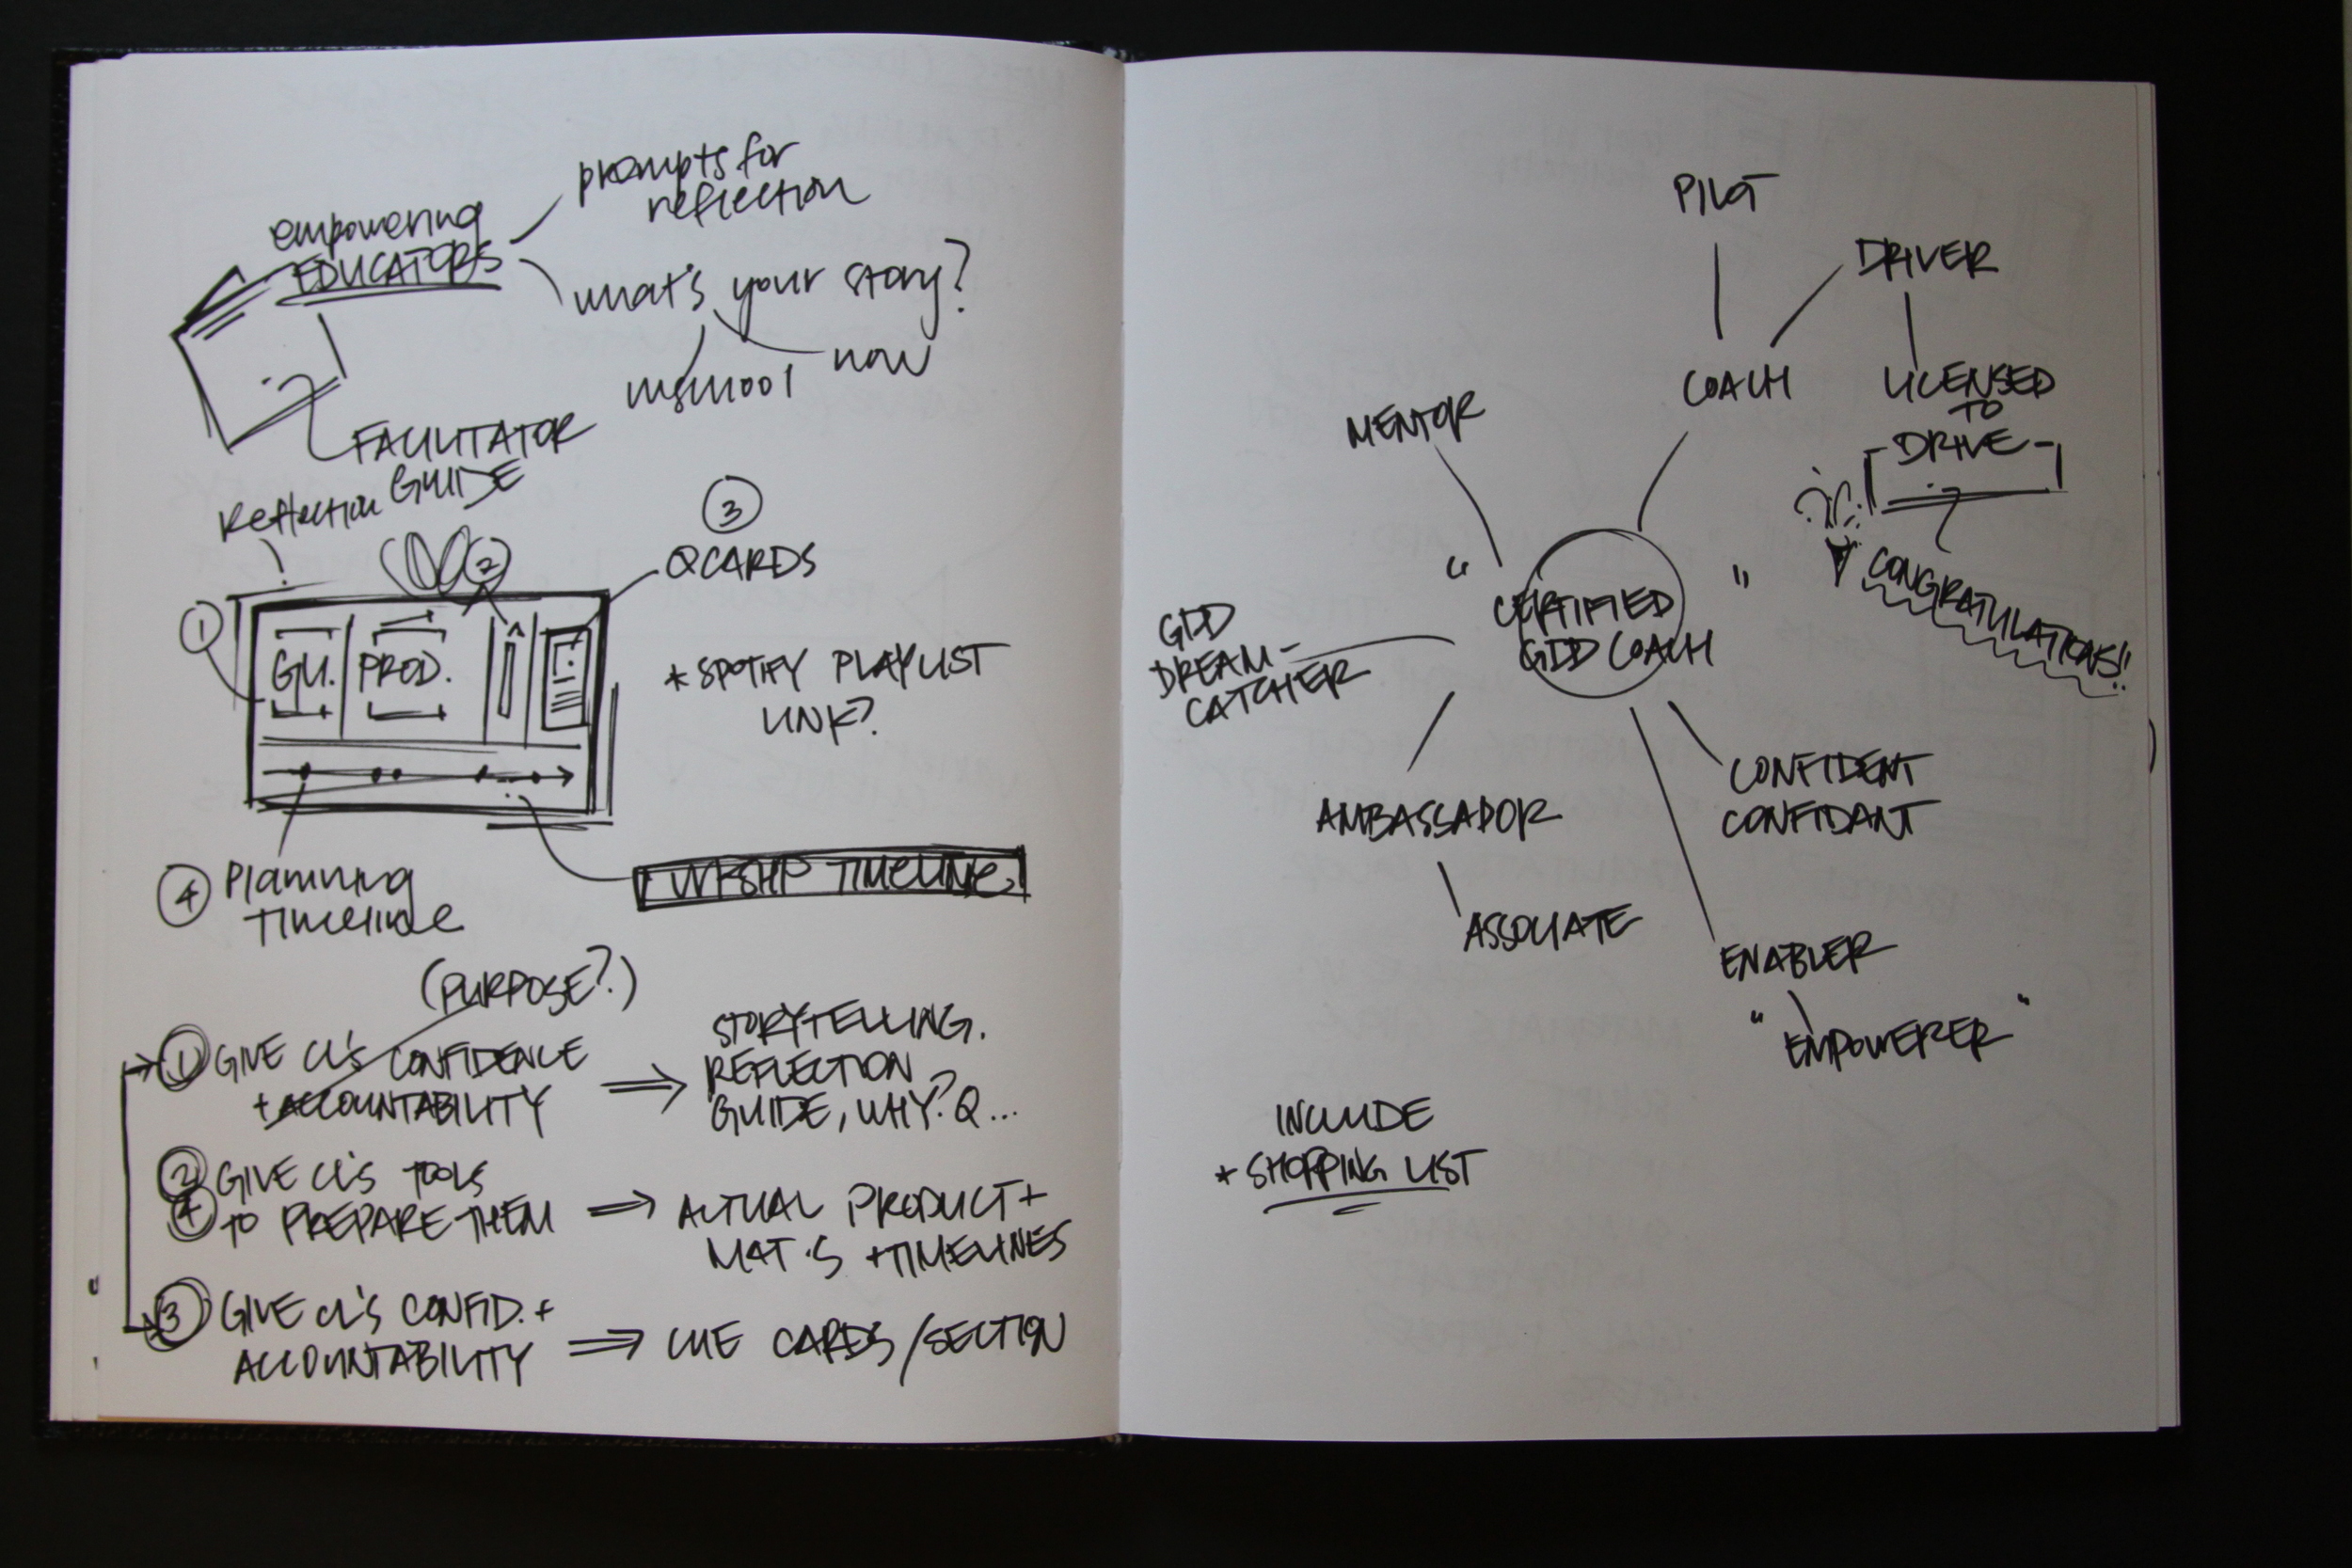 prompts for
reflection
empowering
EDUCATORS
what's your story?
now
FACILITATOR
GUIDE
Reflection
3
QCARDS
2
1
GU.
PROD.
* SPOTIFY PLAYLIST
LINK?
WKSHP TIMELINE
4 Planning
Timeline
(PURPOSE?)
1 GIVE CL'S CONFIDENCE
+ ACCOUNTABILITY
STORYTELLING.
REFLECTION
GUIDE, WHY? Q...
2 GIVE CL'S TOOLS
4 TO PREPARE THEM
ACTUAL PRODUCT +
MAT'S + TIMELINES
3 GIVE CL'S CONFID. +
ACCOUNTABILITY
CUE CARDS / SECTION
PILOT
DRIVER
COACH
LICENSED
TO
DRIVE
MENTOR
CONGRATULATIONS!!
" CERTIFIED "
GDD COACH
GDD
DREAM-
CATCHER
CONFIDENT
CONFIDANT
AMBASSADOR
ASSOCIATE
ENABLER
"EMPOWERER"
INCLUDE
* SHOPPING LIST